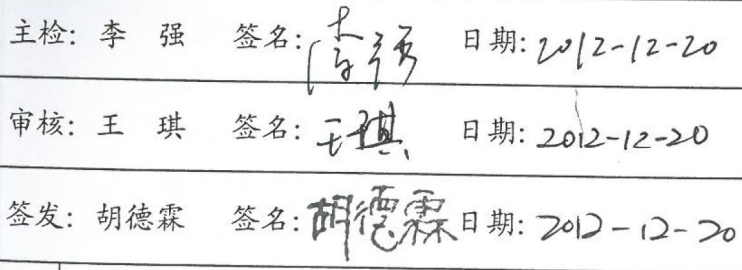 主检: 李 强 签名: 李强 日期: 2012-12-20
审核: 王 琪 签名: 王琪 日期: 2012-12-20
签发: 胡德霖 签名: 胡德霖 日期: 2012-12-20